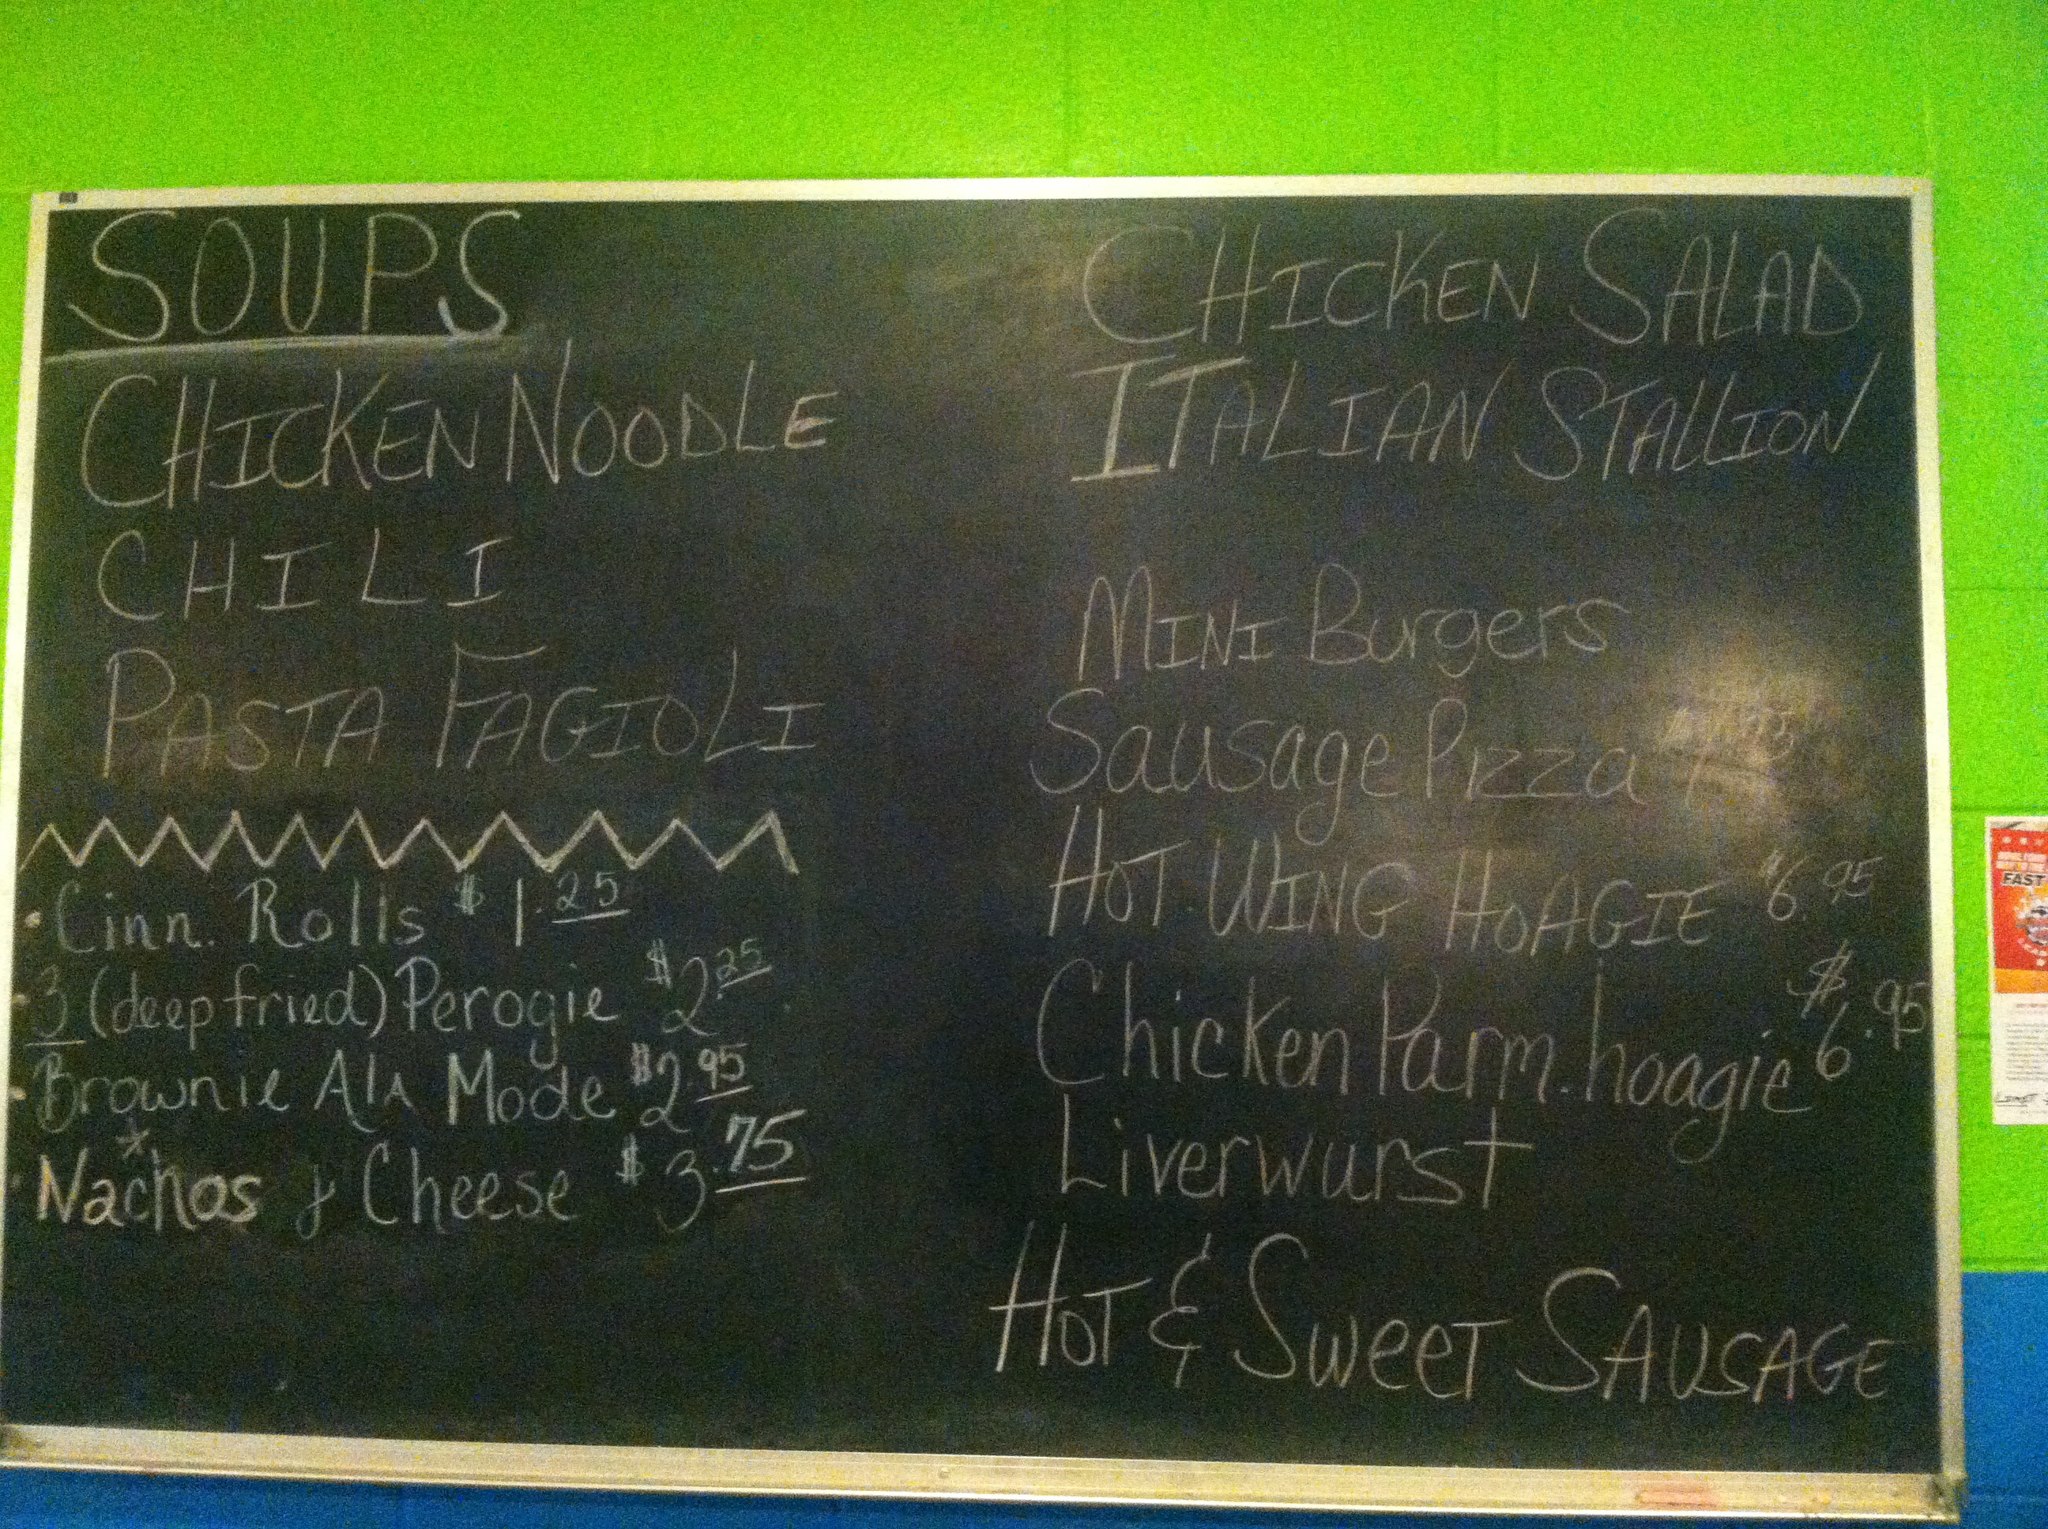 SOUPS
CHICKEN NOODLE
CHILI
PASTA FAGIOLI
• Cinn. Rolls $1.25
• 3 (deep fried) Perogie $2.25
• Brownie Ala Mode $2.95
• Nachos & Cheese $3.75
CHICKEN SALAD
ITALIAN STALLION
MINI Burgers
Sausage Pizza
HOT WING HOAGIE $6.95
Chicken Parm. hoagie $6.95
Liverwurst
HOT & SWEET SAUSAGE
FAST